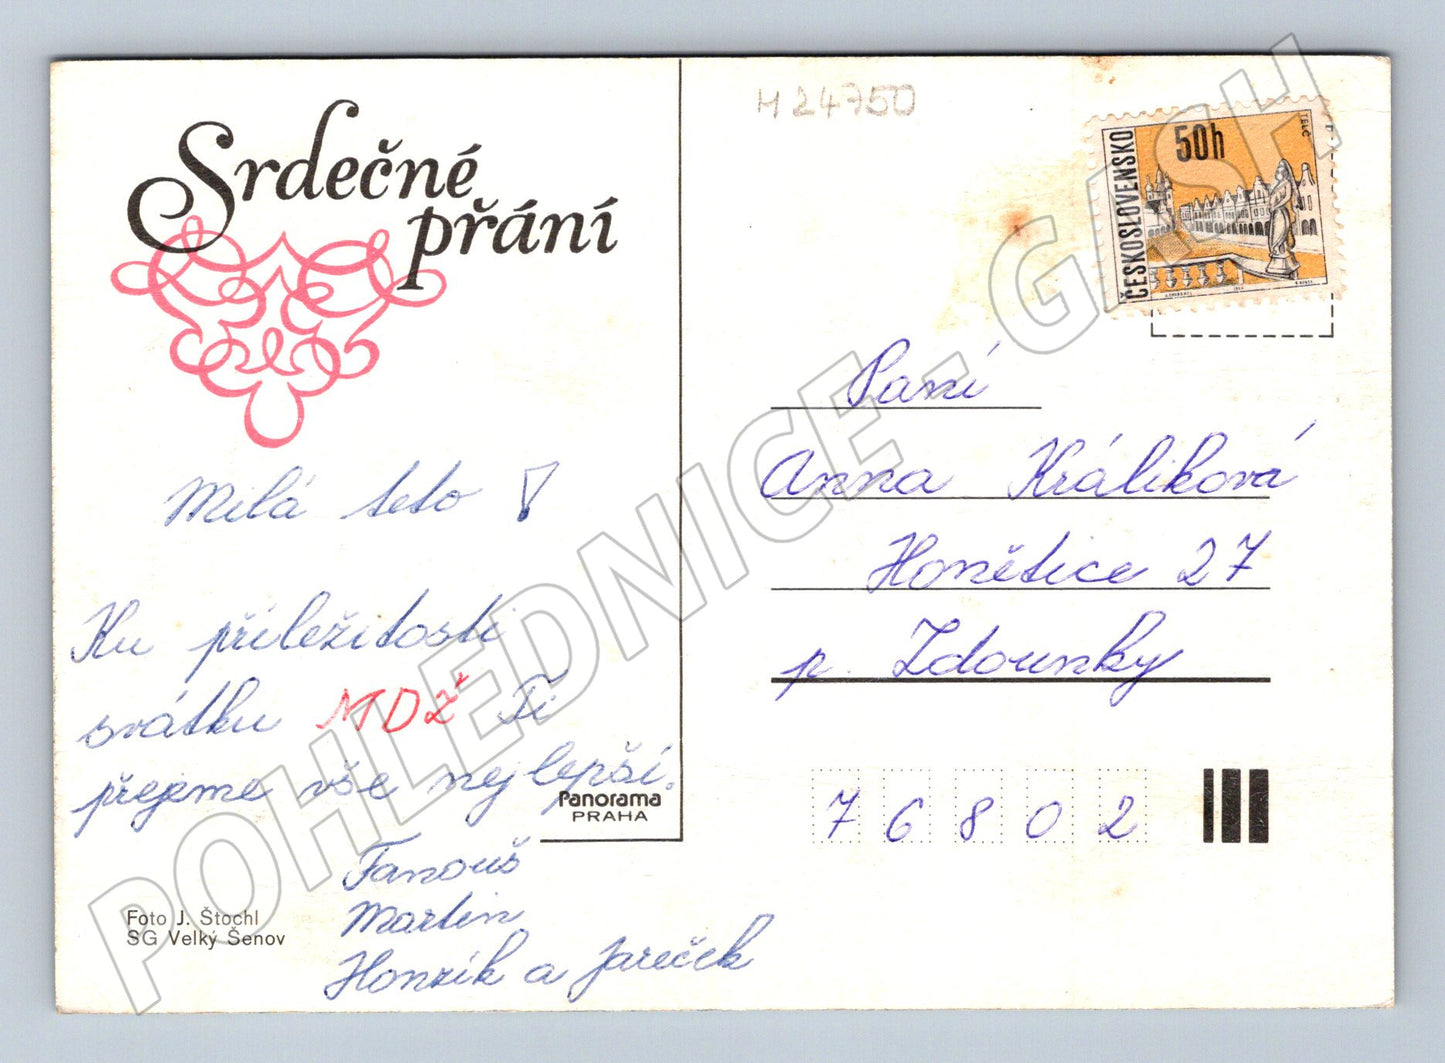 Srdečné
přání
Milá teto!
Ku příležitosti
svátku MDŽ Ti
přejeme vše nejlepší.
Fanouš
Martin
Honzík a Jareček
Foto J. Štochl
SG Velký Šenov
Panorama
PRAHA
M 24750
ČESKOSLOVENSKO
50h
TELČ
Paní
Anna Králiková
Honětice 27
p. Zdounky
76802
POHLEDNICE - GASH